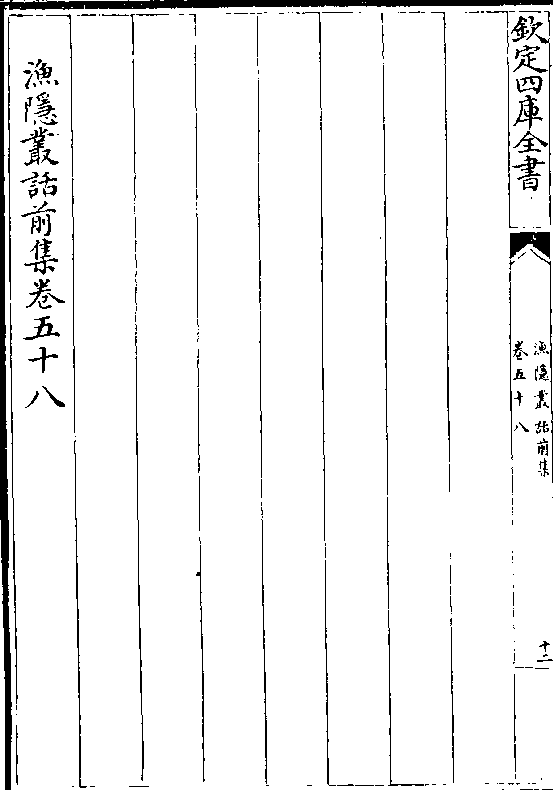 欽定四庫全書
漁隱叢話前集
卷五十八
十二
漁隱叢話前集卷五十八